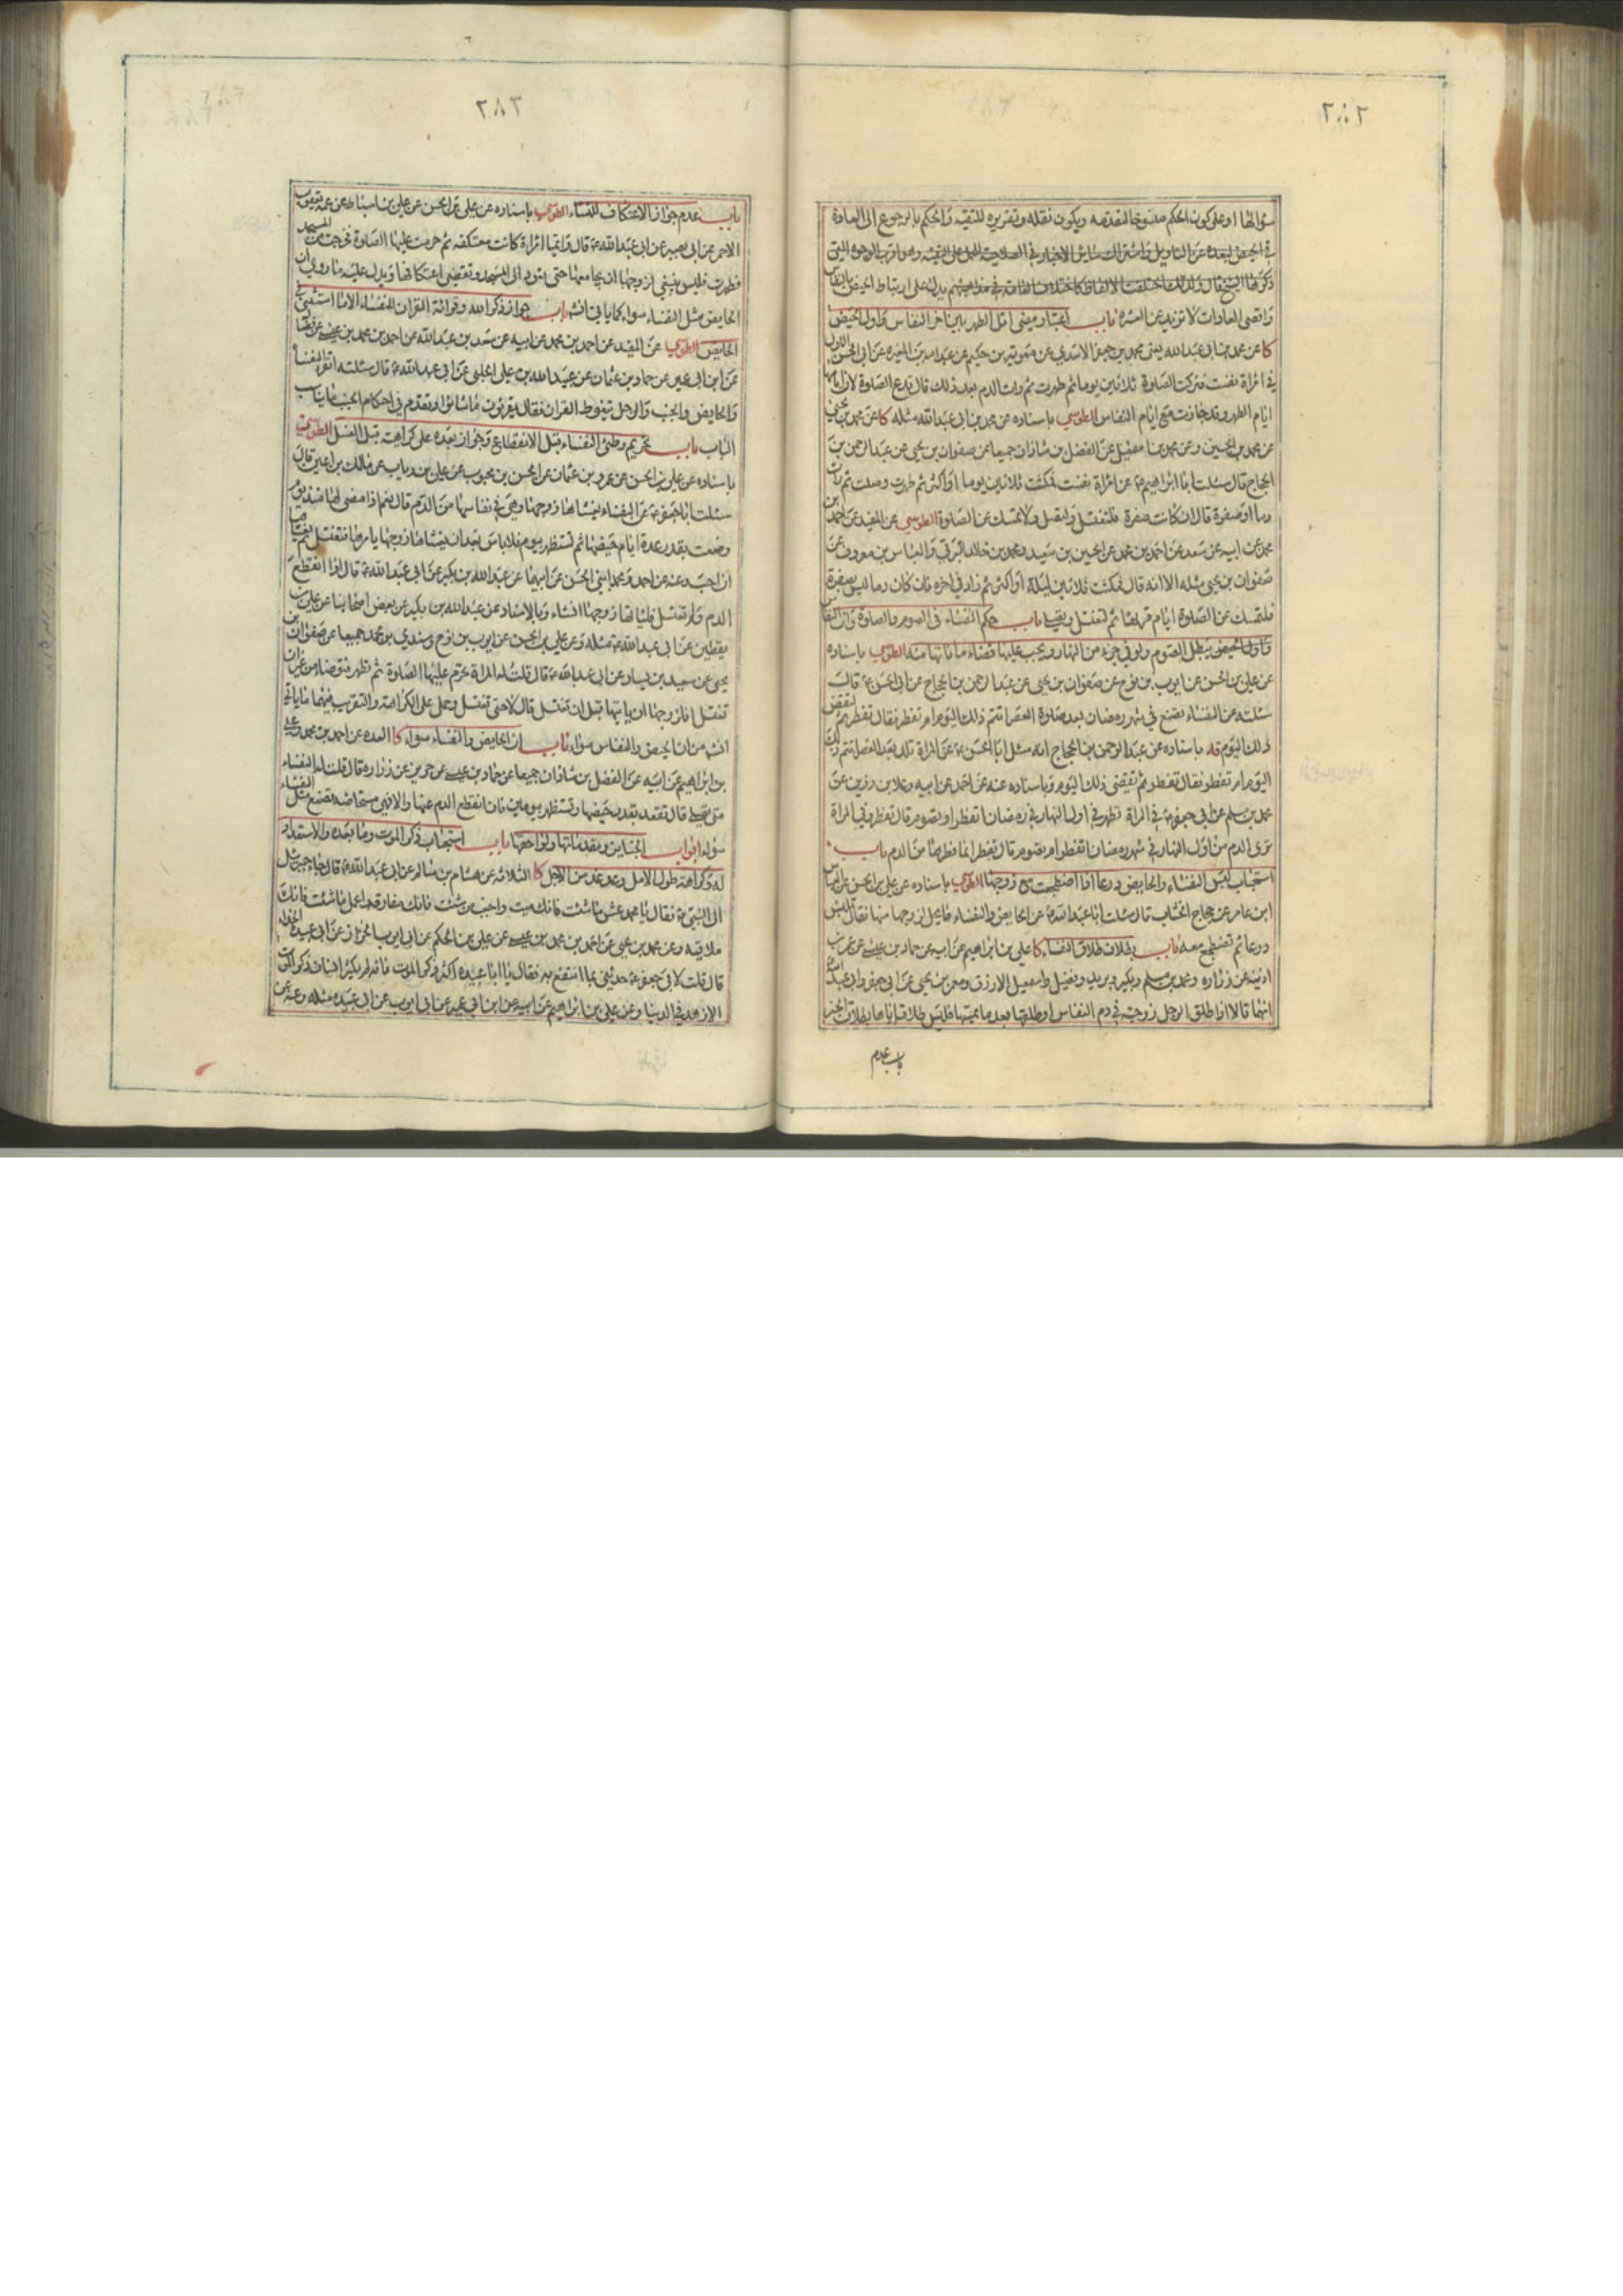 ٢٨٢
سؤالها او على كون الحكم منسوخا لتقدمه ويكون نقله وتقريره للتقيه والحكم بالرجوع الى العادة
في الحيض لبعده عن التاويل
ذكرها الشيخ قال ولذلك اختلفت الالفاظ كاختلاف العامة في مذاهبهم يدل على ارتباط الحيض بالنفاس
واقصى العادات لا تزيد عن العشره باب اعتبار مضى اقل الطهر بين اخر النفاس واول الحيض
كا عن محمد بن ابى عبدالله يعنى محمد بن جعفر الاسدي عن معوية بن حكيم عن عبدالله بن المغيره عن ابى الحسن الاول
في امراة نفست فتركت الصلوة ثلاثين يوما ثم طهرت ثم رات الدم بعد ذلك قال تدع الصلوة لان ايامها
ايام الطهر وقد جازت مع ايام النفاس الطوسي باسناده عن محمد بن ابى عبدالله مثله كا عن محمد بن يحيى
عن محمد بن الحسين وعن محمد بن اسمعيل عن الفضل بن شاذان جميعا عن صفوان بن يحيى عن عبدالرحمن بن
الحجاج قال سئلت ابا ابراهيم ع عن امراة نفست فمكثت ثلاثين يوما او اكثر ثم طهرت وصلت ثم رات
دما او صفرة قال ان كانت صفرة فلتغتسل ولتصل ولا تمسك عن الصلوة الطوسي عن المفيد عن احمد بن
محمد عن ابيه عن سعد عن احمد بن محمد عن الحسين بن سعيد ومحمد بن خالد البرقي والعباس بن معروف عن
صفوان بن يحيى مثله الا انه قال فمكثت ثلاثين ليلة او اكثر ثم زاد في اخره فان كان دما ليس بصفرة
فلتمسك عن الصلوة ايام قرئها ثم لتغتسل وتصلى باب حكم النفساء فى الصوم والصلوة وان النفاس
واول الحيض يبطل الصوم ولو في جزء من النهار ويجب عليها قضاء ما فاتها منه الطوسي باسناده
عن علي بن الحسن عن ايوب بن نوح عن صفوان بن يحيى عن عبدالرحمن بن الحجاج عن ابى الحسن ع قال
سئلته عن النفساء تضع في شهر رمضان بعد صلوة العصر اتتم ذلك اليوم ام تفطر فقال تفطر ثم لتقض
ذلك اليوم قه باسناده عن عبدالرحمن بن الحجاج انه سئل ابا الحسن ع عن المراة تلد بعد العصر اتتم ذلك
اليوم ام تفطر فقال تفطر ثم تقضى ذلك اليوم وباسناده عنه عن احمد عن ابيه وعلا بن رزين عن
محمد بن مسلم عن ابى جعفر ع في المراة تطهر في اول النهار في رمضان اتفطر او تصوم قال تفطر وفي المراة
ترى الدم من اول النهار في شهر رمضان اتفطر ام تصوم قال تفطر انما فطرها من الدم باب
استحباب لبس النفساء والحايض درعا اذا اضطجعت مع زوجها الطوسي باسناده عن علي بن الحسن عن العباس
ابن عامر عن حجاج الخشاب قال سئلت ابا عبدالله ع عن الحايض والنفساء ما يحل لزوجها منها فقال تلبس
درعا ثم تضطجع معه باب بطلان طلاق النفساء كا علي بن ابراهيم عن ابيه عن حماد بن عيسى عن عمر بن
اذينة عن زراره ومحمد بن مسلم وبكير وبريد وفضيل واسمعيل الازرق ومعمر بن يحيى عن ابى جعفر وابى عبدالله
انهما قالا اذا طلق الرجل زوجته في دم النفاس او طلقها بعد ما يمسها فليس طلاقه اياها بطلاق الخبر
باب عدم
٢٨٣
باب عدم جواز الاعتكاف للنفساء الطوسي باسناده عن على بن الحسن عن علي بن اسباط عن عمه يعقوب
الاحمر عن ابى بصير عن ابى عبدالله ع قال وايما امراة كانت معتكفه ثم حرمت عليها الصلوة فخرجت من المسجد
فطهرت فليس ينبغي لزوجها ان يجامعها حتى تعود الى المسجد وتقضى اعتكافها ويدل عليه ما روي ان
الحايض مثل النفساء سواء كما ياتى انش باب جواز ذكر الله وقرائة القران للنفساء الا ما استثنى في
الحايض الطوسي عن المفيد عن احمد بن محمد عن ابيه عن سعد بن عبدالله عن احمد بن محمد بن عيسى
عن ابن ابى عمير عن حماد بن عثمان عن عبيدالله بن على الحلبى عن ابى عبدالله ع قال سئلته اتقرا النفساء
والحايض والجنب والرجل تيغوط القران فقال يقرئون ما شائوا وتقدم فى احكام الجنب ما يناسب
الباب باب تحريم وطى النفساء قبل الانقطاع وجوازه بعده على كراهية قبل الغسل الطوسي
باسناده عن علي بن الحسن عن عمرو بن عثمان عن الحسن بن محبوب عن علي بن رياب عن مالك بن اعين قال
سئلت ابا جعفر ع عن النفساء يغشاها زوجها وهي في نفاسها من الدم قال نعم اذا مضى لها منذ يوم
وضعت بقدر عدة ايام حيضها ثم تستظهر بيوم فلا باس بعد ان يغشاها زوجها يامرها فتغتسل ثم يغشاها
ان احب وعنه عن احمد ومحمد ابنى الحسن عن ابيهما عن عبدالله بن بكير عن ابى عبدالله ع قال اذا انقطع
الدم ولم تغتسل فلياتها زوجها ان شاء وبالاسناد عن عبدالله بن بكير عن بعض اصحابنا عن علي بن
يقطين عن ابى عبدالله ع مثله وعن علي بن الحسن عن ايوب بن نوح وسندي بن محمد جميعا عن صفوان بن
يحيى عن سعيد بن يسار عن ابى عبدالله ع قال قلت له المراة تحرم عليها الصلوة ثم تطهر فتوضاء من غير ان
تغتسل افلزوجها ان ياتيها قبل ان تغتسل قال لا حتى تغتسل وحمل على الكراهة والتقريب فيهما ما ياتى
انش من ان الحيض والنفاس سواء باب ان الحايض والنفساء سواء كا العده عن احمد بن محمد وعلى
بن ابراهيم عن ابيه عن الفضل بن شاذان جميعا عن حماد بن عيسى عن حريز عن زراره قال قلت له النفساء
متى تصلى قال تقعد بقدر حيضها وتستظهر بيومين فان انقطع الدم عنها والا فهى مستحاضه تصنع مثل النفساء
سواء ابواب الجنايز ومقدماتها ولواحقها باب استحباب ذكر الموت وما بعده والاستعداد
له وكراهة طول الامل وعد غد من الاجل كا الثلاثه عن هشام بن سالم عن ابى عبدالله ع قال جاء جبرئيل
الى النبى ص فقال يا محمد عش ما شئت فانك ميت واحبب من شئت فانك مفارقه واعمل ما شئت فانك
ملاقيه وعن محمد بن يحيى عن احمد بن محمد بن عيسى عن علي بن الحكم عن ابى ايوب الخزاز عن ابى عبيدة الحذاء
قال قلت لابى جعفر ع حدثنى بما انتفع به فقال يا ابا عبيده اكثر ذكر الموت فانه لم يكثر انسان ذكر الموت
الا زهد في الدنيا وعن علي بن ابراهيم عن ابيه عن ابن ابى عمير عن ابى ايوب عن ابى عبيده مثله وعنه عن